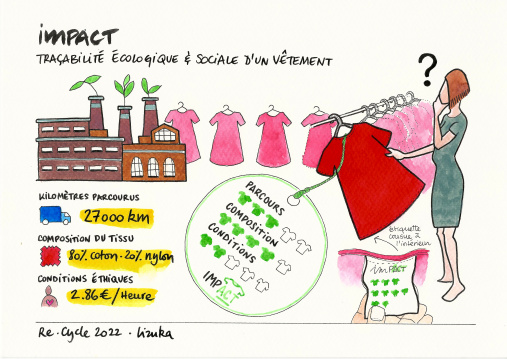 impACT
TRAÇABILITÉ ÉCOLOGIQUE & SOCIALE D'UN VÊTEMENT
?
KILOMÈTRES PARCOURUS
27000 km
COMPOSITION DU TISSU
80% coton · 20% nylon
CONDITIONS ÉTHIQUES
2.86€/Heure
PARCOURS
COMPOSITION
CONDITIONS
IMPACT
étiquette
cousue à
l'intérieur
impACT
Re·Cycle 2022 · Lizuka